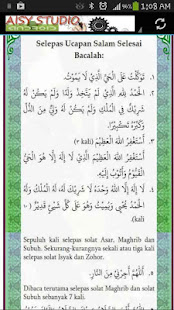 1:08 AM
AISY STUDIO
Selepas Ucapan Salam Selesai
Bacalah:
١. تَوَكَّلْتُ عَلَى الْحَيِّ الَّذِيْ لَا يَمُوْتُ.
٢. الْحَمْدُ لِلَّهِ الَّذِيْ لَمْ يَتَّخِذْ وَلَدًا وَلَمْ يَكُنْ لَهُ
شَرِيْكٌ فِي الْمُلْكِ وَلَمْ يَكُنْ لَهُ وَلِيٌّ مِنَ الذُّلِّ
وَكَبِّرْهُ تَكْبِيْرًا.
٣. أَسْتَغْفِرُ اللهَ الْعَظِيْمَ (3 kali)
٤. أَسْتَغْفِرُ اللهَ الْعَظِيْمَ الَّذِيْ لَا إِلٰهَ إِلَّا هُوَ الْحَيُّ
الْقَيُّوْمُ وَأَتُوْبُ إِلَيْهِ.
٥. لَا إِلٰهَ إِلَّا اللهُ وَحْدَهُ لَا شَرِيْكَ لَهُ، لَهُ الْمُلْكُ وَلَهُ
الْحَمْدُ يُحْيِيْ وَيُمِيْتُ وَهُوَ عَلَى كُلِّ شَيْئٍ قَدِيْرٌ
kali)
Sepuluh kali selepas solat Asar, Maghrib dan
Subuh. Sekurang-kurangnya sekali atau tiga kali
selepas solat Isyak dan Zohor.
٦. اَللّٰهُمَّ أَجِرْنِيْ مِنَ النَّارِ.
Dibaca terutama selepas solat Maghrib dan
Subuh sebanyak 7 kali.